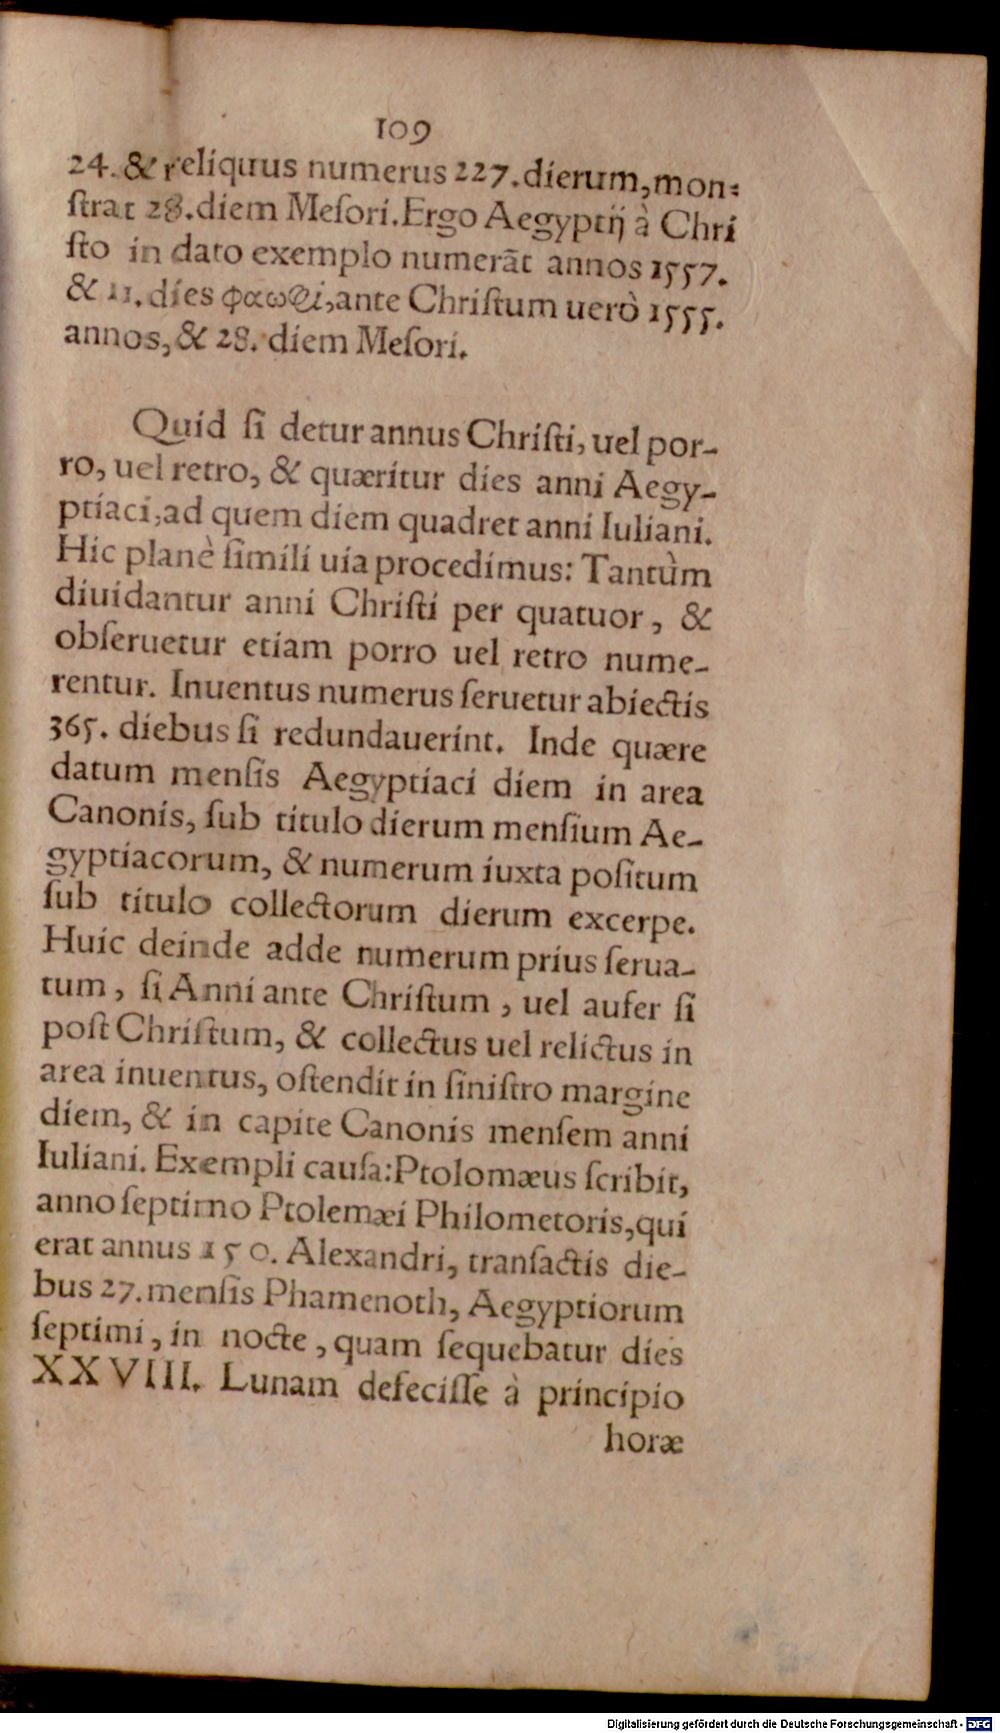 109
24. & reliquus numerus 227. dierum, mon⸗
ſtrat 28. diem Meſori. Ergo Aegyptij à Chri
ſto in dato exemplo numerãt annos 1557.
& 11. dies φαωφi, ante Chriſtum uerò 1555.
annos, & 28. diem Meſori.
Quid ſi detur annus Chriſti, uel por-
ro, uel retro, & quæritur dies anni Aegy-
ptiaci, ad quem diem quadret anni Iuliani.
Hic planè ſimili uia procedimus: Tantùm
diuidantur anni Chriſti per quatuor, &
obſeruetur etiam porro uel retro nume-
rentur. Inuentus numerus ſeruetur abiectis
365. diebus ſi redundauerint. Inde quære
datum menſis Aegyptiaci diem in area
Canonis, ſub titulo dierum menſium Ae-
gyptiacorum, & numerum iuxta poſitum
ſub titulo collectorum dierum excerpe.
Huic deinde adde numerum prius ſerua-
tum, ſi Anni ante Chriſtum, uel aufer ſi
poſt Chriſtum, & collectus uel relictus in
area inuentus, oſtendit in ſiniſtro margine
diem, & in capite Canonis menſem anni
Iuliani. Exempli cauſa: Ptolomæus ſcribit,
anno ſeptimo Ptolemæi Philometoris, qui
erat annus 150. Alexandri, tranſactis die-
bus 27. menſis Phamenoth, Aegyptiorum
ſeptimi, in nocte, quam ſequebatur dies
XXVIII. Lunam defeciſſe à principio
horæ
Digitalisierung gefördert durch die Deutsche Forschungsgemeinschaft - DFG